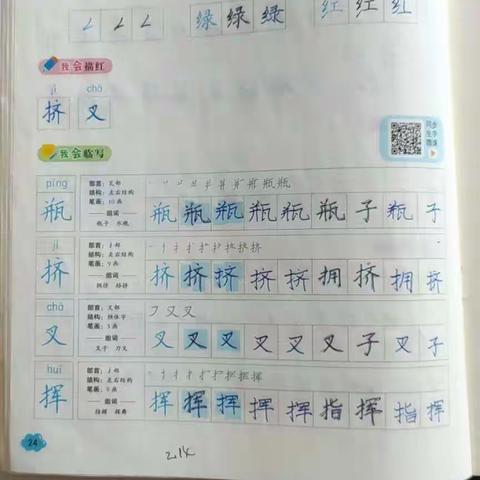 绿 绿 绿 红 红 红
我会描红
jǐ chā
挤 叉
同步生字视频
我会临写
píng
瓶
部首：瓦部
结构：左右结构
笔画：10画
组词
瓶子 水瓶
瓶 瓶 瓶 瓶 瓶 瓶 子 瓶 子
jǐ
挤
部首：扌部
结构：左右结构
笔画：9画
组词
拥挤
挤 挤 挤 挤 挤 拥 挤 拥 挤
chā
叉
部首：又部
结构：独体字
笔画：3画
组词
叉子 刀叉
叉 叉 叉 叉 叉 叉 子 叉 子
huī
挥
部首：扌部
结构：左右结构
笔画：9画
组词
指挥 挥舞
挥 挥 挥 挥 挥 指 挥 指 挥
24